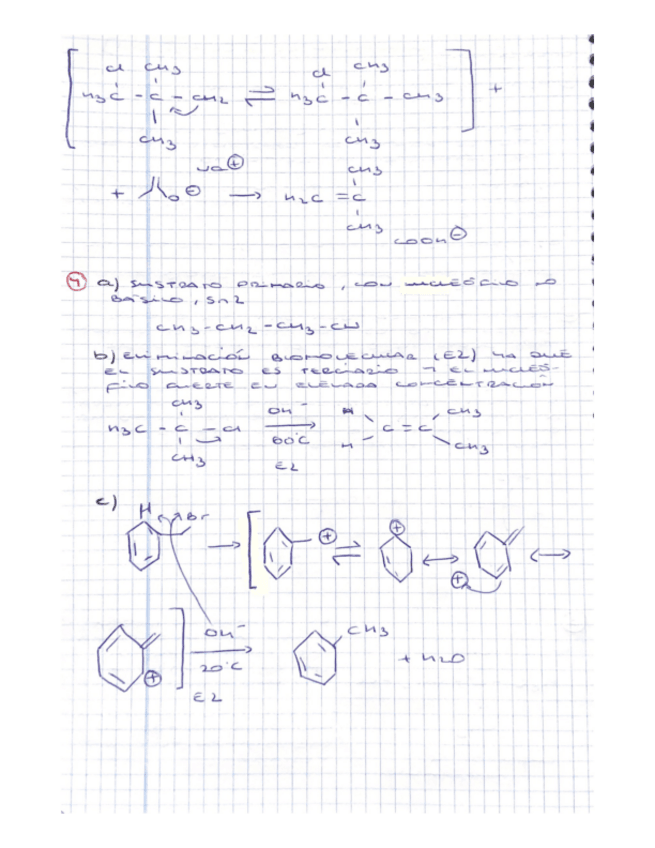 Cl CH3 Cl CH3
H3C - C - CH2 ⇌ H3C - C - CH3 +
CH3 CH3
Na⊕ CH3
+ O⊖ → H2C = C
CH3
COOH⊖
4 a) SUSTRATO PRIMARIO, CON NUCLEÓFILO NO
BÁSICO, SN2
CH3-CH2-CH3-CN
b) ELIMINACIÓN BIOMOLECULAR (E2) YA QUE
EL SUSTRATO ES TERCIARIO Y EL NUCLEÓ-
FILO FUERTE EN ELEVADA CONCENTRACIÓN
CH3 OH⁻ H CH3
H3C - C - Cl → C = C
CH3 60°C H CH3
E2
c)
H Br
→ [ ⊕ ⇌ ⊕ ↔ ⊕ ↔
⊕ ] OH⁻ → CH3 + H2O
20°C
E2